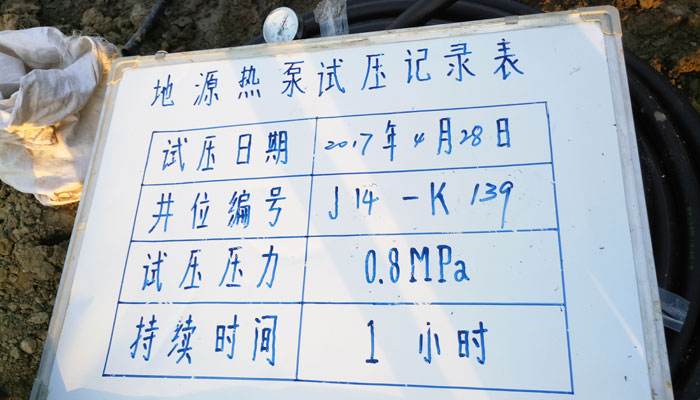 地源热泵试压记录表
试压日期 2017年4月28日
井位编号 J14-K139
试压压力 0.8MPa
持续时间 1小时